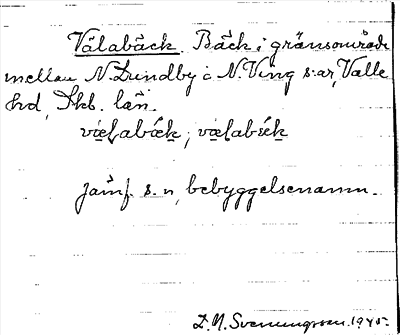 Välabäck. Bäck i gränsområde
mellan N. Lundby o N. Ving s:ar, Valle
hd, Skb. län.
vælabæk, vælabæk
jämf. s. n, bebyggelsenamn.
D. N. Svenungsson. 1945.